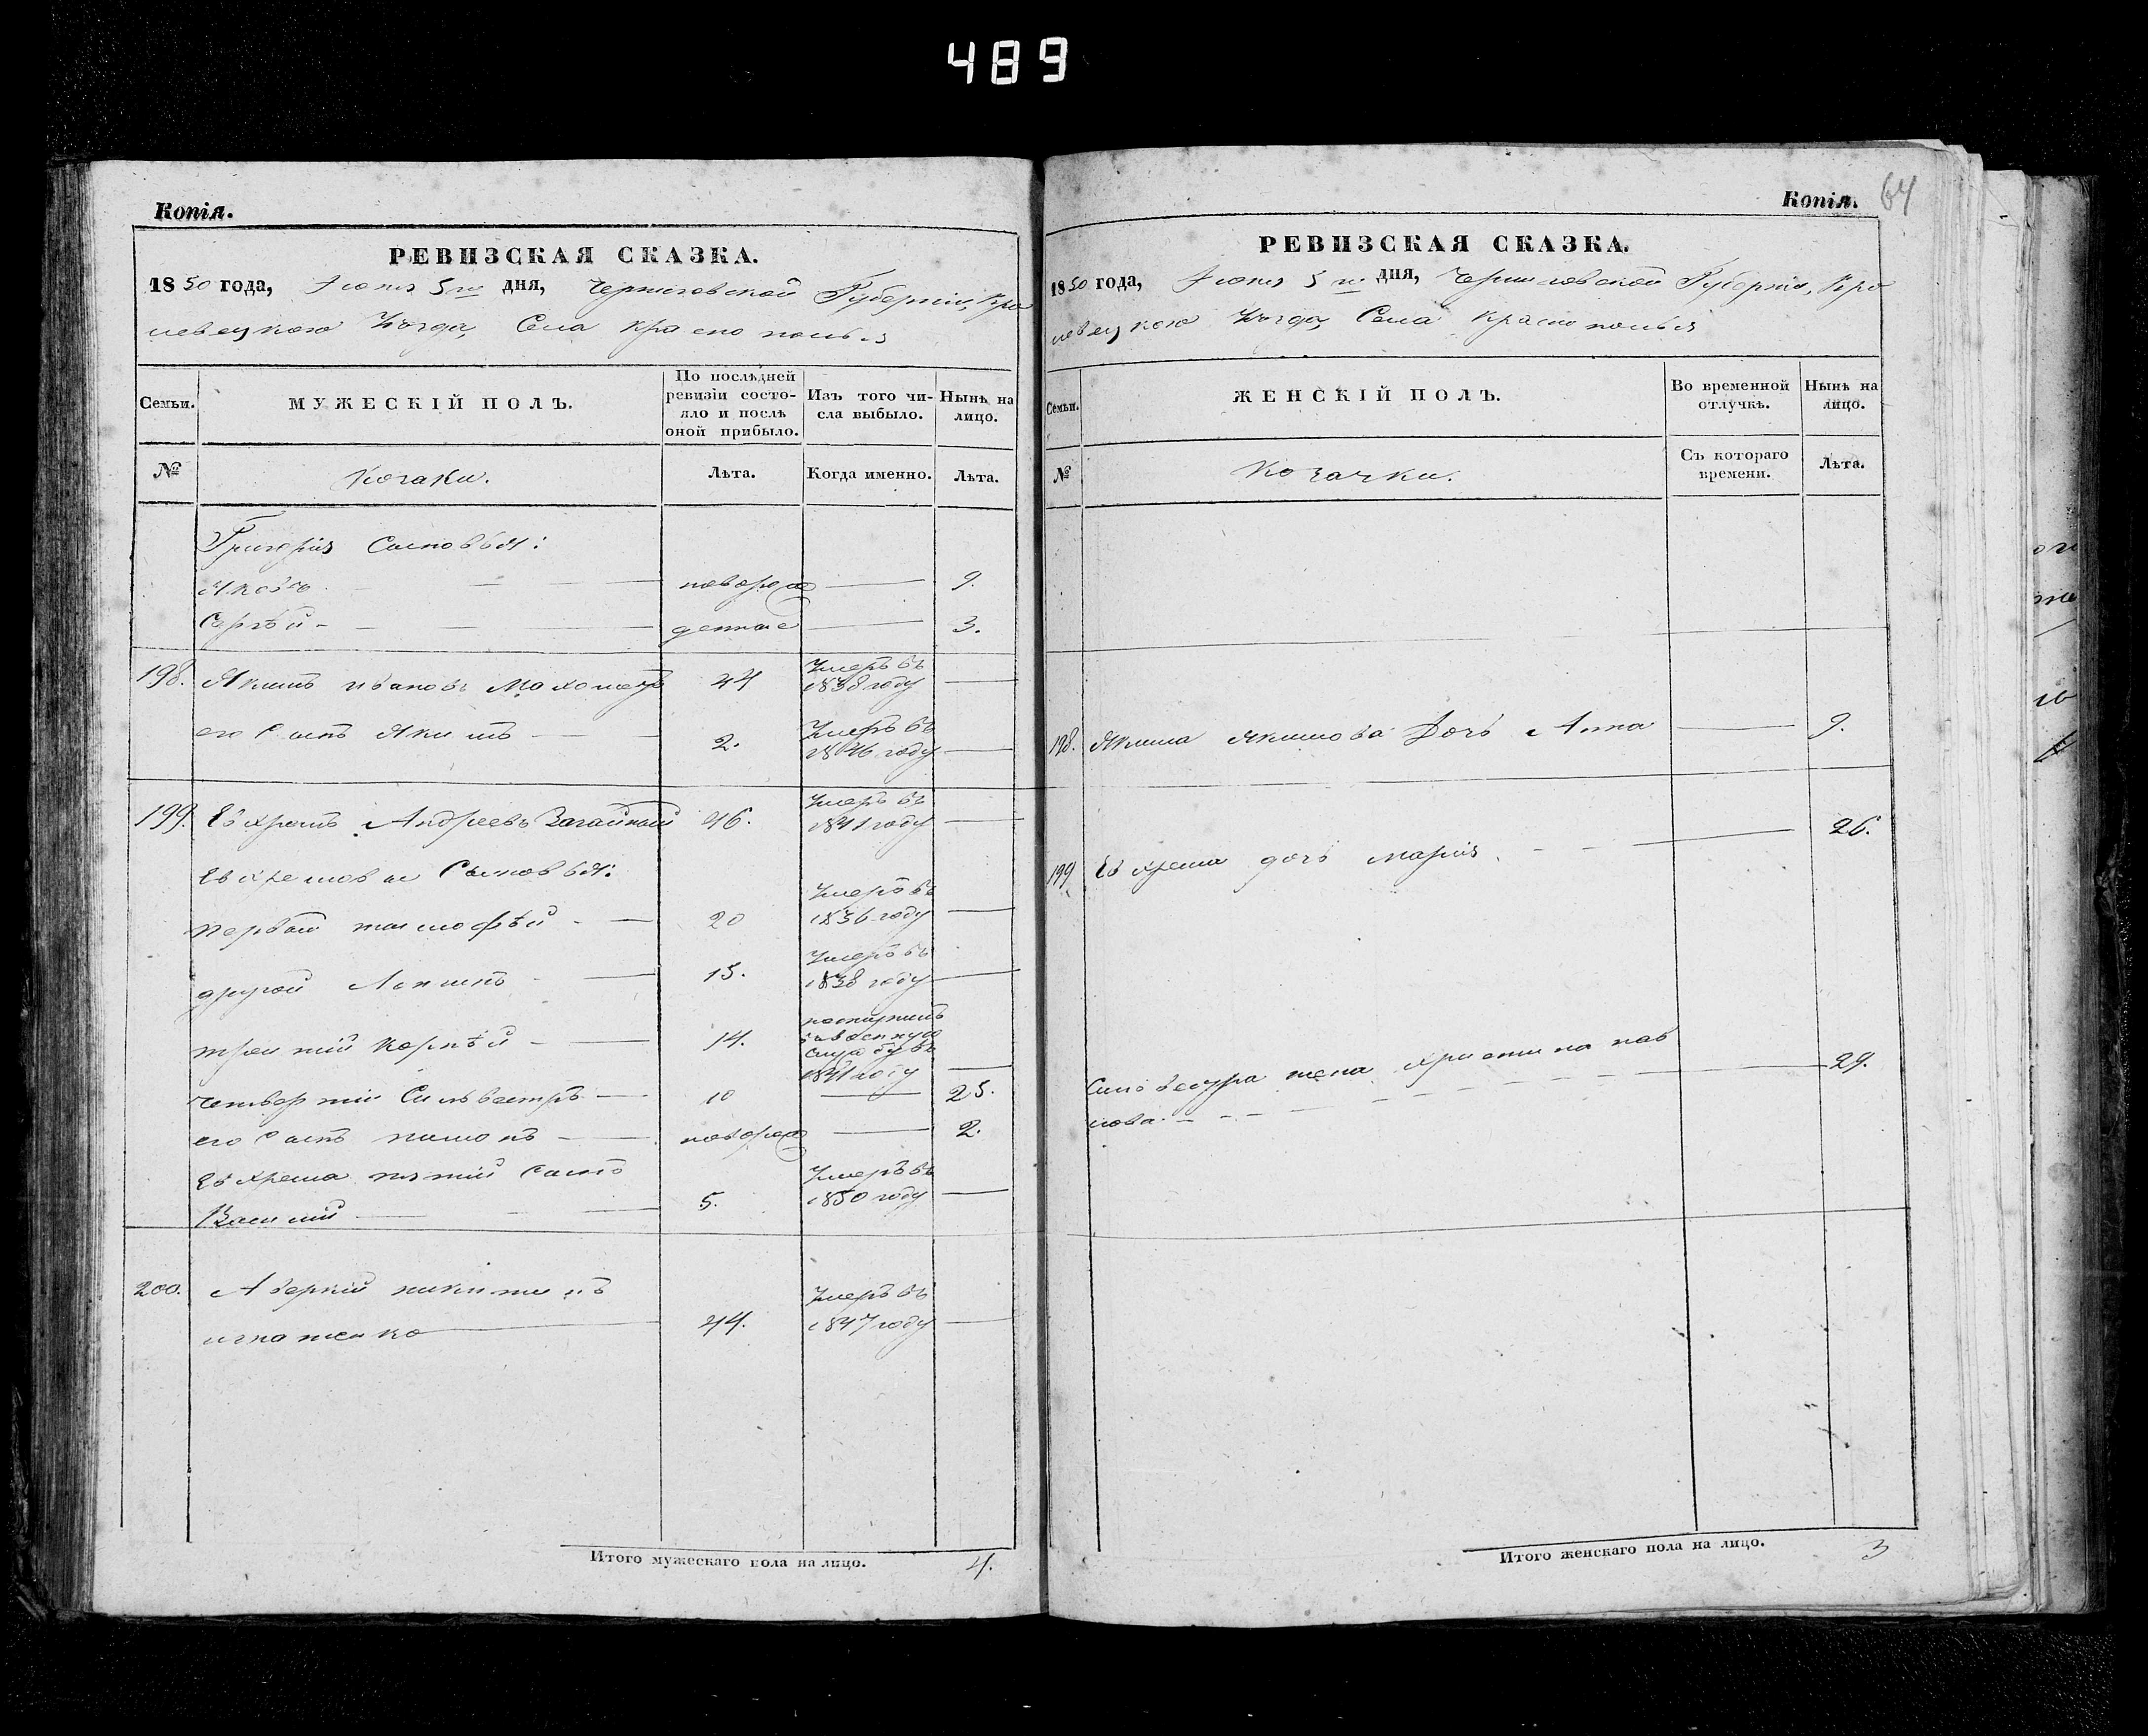 489
Копія.
РЕВИЗСКАЯ СКАЗКА.
1850 года, Іюня 5го дня, Черниговской Губерніи, Кро
левецкого Уезда, Села Краснополья
Семьи.
МУЖЕСКІЙ ПОЛЪ.
По послѣдней ревизіи состо-
яло и послѣ оной прибыло.
Изъ того чи-
сла выбыло.
Нынѣ на лицо.
№
Козаки.
Лѣта.
Когда именно.
Лѣта.
Григорія Сыновья:
Яковъ новорож 9.
Сергѣй денные 3.
198. Якимъ Ивановъ 44 Умеръ въ
1838 году
его Сынъ Якимъ 2. Умеръ въ
1846 году
199. Евхремъ Андреевъ Загайный 46. Умеръ въ
1841 году
Евхремовы Сыновья:
первый тимофѣй 20 Умеръ въ
1836 году
другой 15. Умеръ въ
1838 году
третій Корнѣй 14. поступилъ
въ военную
службу въ
1841 году
четвертій Сильвестръ 10 25.
его Сынъ новорож 2.
Евхрема пятій Сынъ
Василій 5. Умеръ въ
1850 году
200. Аверкій никитинъ
игнатенко 44. Умеръ въ
1847 году
Итого мужескаго пола на лицо. 4.
Копія. 64
РЕВИЗСКАЯ СКАЗКА.
1850 года, Іюня 5го дня, Черниговской Губерніи, Кро
левецкого Уезда, Села Краснополья
Семьи.
ЖЕНСКІЙ ПОЛЪ.
Во временной
отлучкѣ.
Нынѣ на
лицо.
№
Козачки.
Съ котораго
времени.
Лѣта.
198. Якима Якимова Дочь Анна 9.
199. Евхрема дочь марія 26.
Сильвестра жена христина пав
лова 29.
Итого женскаго пола на лицо. 3